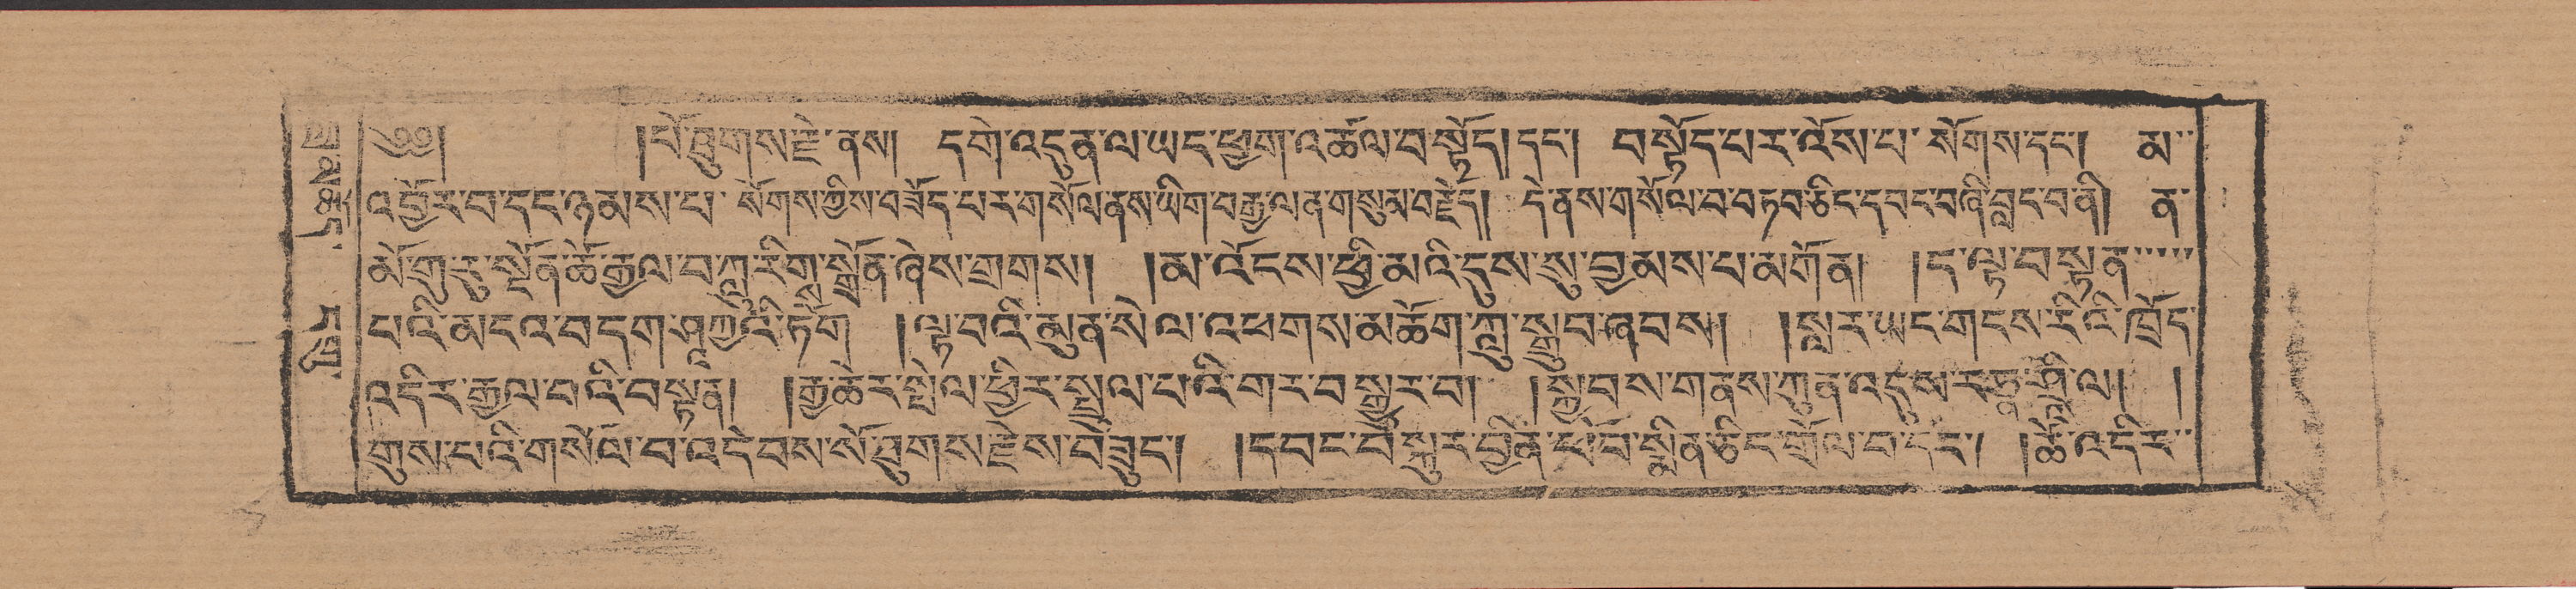 ༄༅། །པོ་ཕྲུགས་རྗེ་ནས། དགེ་འདུན་ལ་ཡང་ཕྱག་འཚལ་བསྟོད། དང་། བསྟོད་པར་འོས་པ་སོགས་དང་། མ་
འབྱོར་བ་དང་ཉམས་པ་སོགས་ཀྱིས་བཟོད་པར་གསོལ་ནས་ཡིག་བརྒྱ་ལན་གསུམ་བརྗོད། དེ་ནས་གསོལ་བ་བཏབ་ཅིང་དབང་བཞི་བླང་བ་ནི། ན་
མོ་གུ་རུ་སྔོན་ཚེ་རྒྱལ་བ་ཀླུ་རིག་སྒྲོན་ཞེས་གྲགས། །མ་འོངས་ཕྱི་མའི་དུས་སུ་བྱམས་པ་མགོན། །ད་ལྟ་བསྟན་
པའི་མངའ་བདག་ཤཱཀྱའི་ཏོག །ལྟ་བའི་མུན་སེལ་འཕགས་མཆོག་ཀླུ་སྒྲུབ་ཞབས། །སླར་ཡང་གངས་རིའི་ཁྲོད་
འདིར་རྒྱལ་བའི་བསྟན། །རྒྱ་ཆེར་སྤེལ་ཕྱིར་སྤྲུལ་པའི་གར་བསྒྱུར་བ། །སྐྱབས་གནས་ཀུན་འདུས་རཏྣ་ཤྲཱི་ལ། །
གུས་པའི་གསོལ་བ་འདེབས་སོ་ཐུགས་རྗེས་བཟུང་། །དབང་བསྐུར་བྱིན་ཕོབ་སྨིན་ཅིང་གྲོལ་བ་དང་། །ཚེ་འདིར་